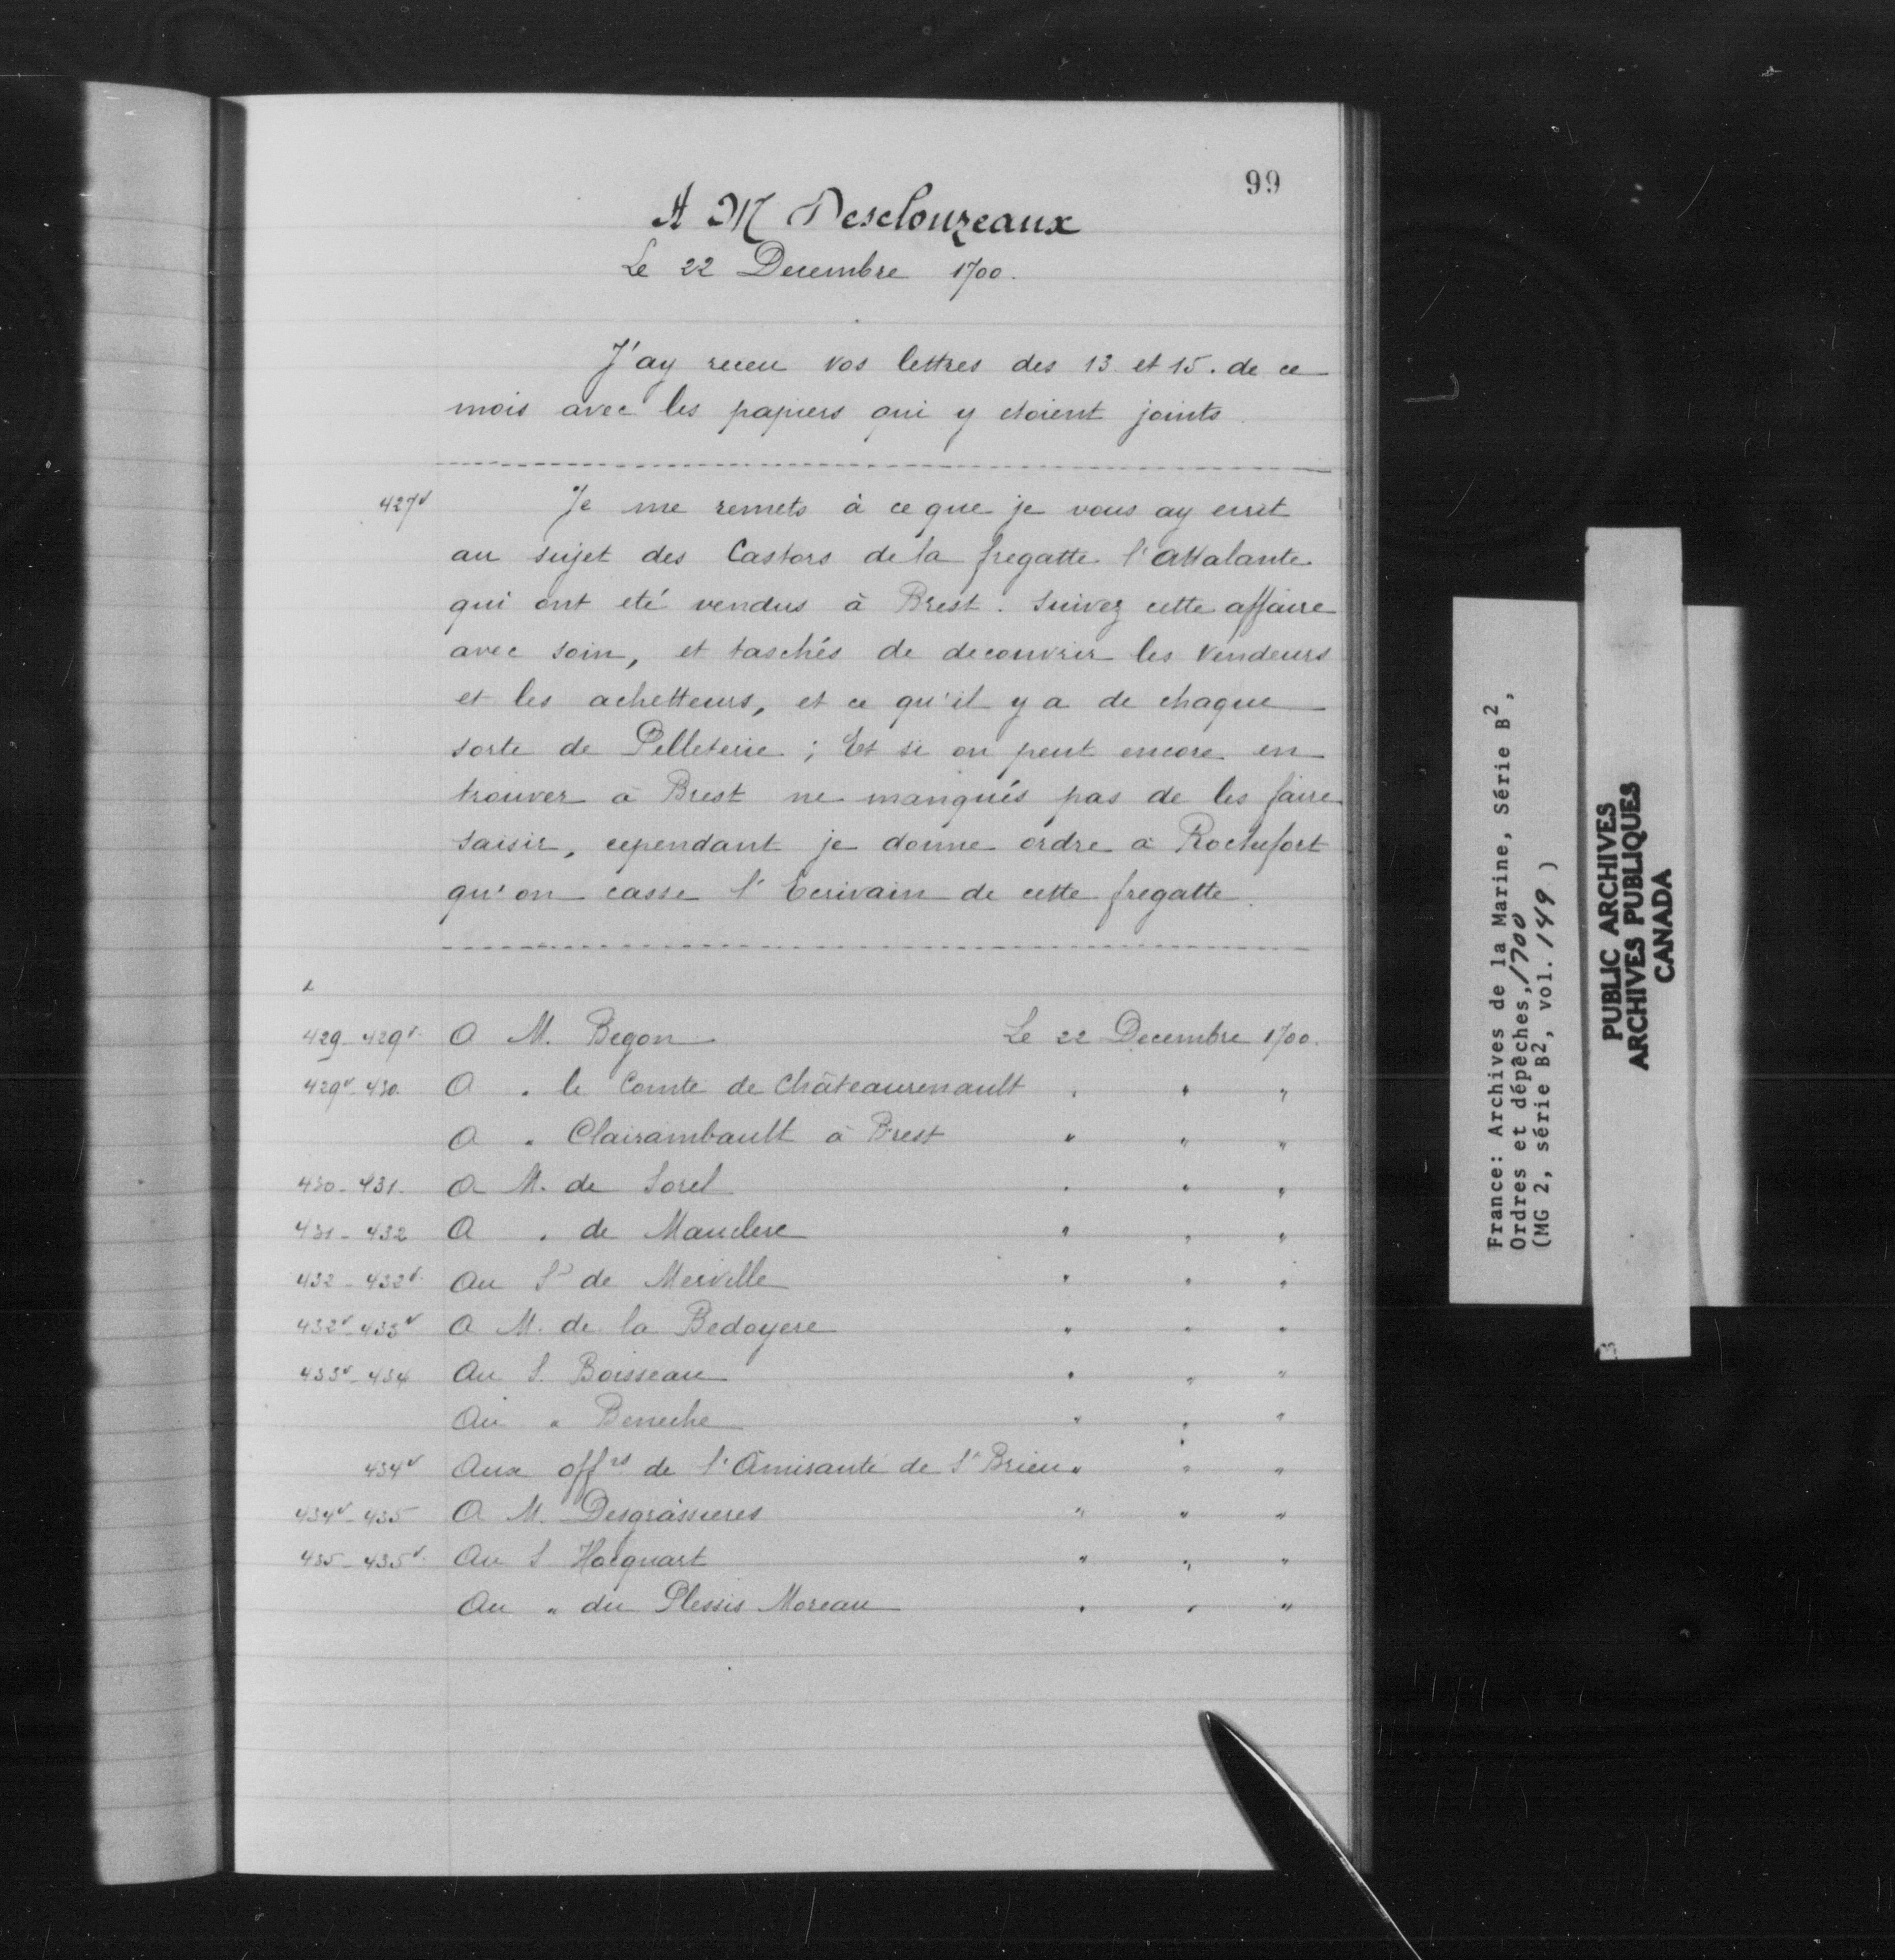 99
A M Desclouzeaux
Le 22 Decembre 1700.
J'ay receu vos lettres des 13 et 15. de ce
mois avec les papiers qui y etoient joints.
427v Je me remets à ce que je vous ay ecrit
au sujet des Castors de la fregatte l'attalante
qui ont eté vendus à Brest. Suivez cette affaire
avec soin, et taschés de decouvrir les Vendeurs
et les achetteurs, et ce qu'il y a de chaque
sorte de Pelleterie ; Et si on peut encore en
trouver à Brest ne manqués pas de les faire
saisir, cependant je donne ordre à Rochefort
qu'on casse l'Ecrivain de cette fregatte.
429-429v A M. Begon Le 22 Decembre 1700.
429v-430. A " le Comte de Châteaurenault " " "
A " Clairambault à Brest " " "
430-431. A M. de Sorel " " "
431-432 A " de Mauclerc " " "
432-432v. Au Sr de Merville " " "
432v-433v A M. de la Bedoyere " " "
433v-434 Au S. Boisseau " " "
Au " " " "
434v Aux offrs de l'Amirauté de St Brieu " " "
434v-435 A M. Desgrassieres " " "
435-435v. Au S Hocquart " " "
Au " du Plessis Moreau " " "
France: Archives de la Marine, Série B2,
Ordres et dépêches, 1700
(MG 2, série B2, vol. 149 )
PUBLIC ARCHIVES
ARCHIVES PUBLIQUES
CANADA